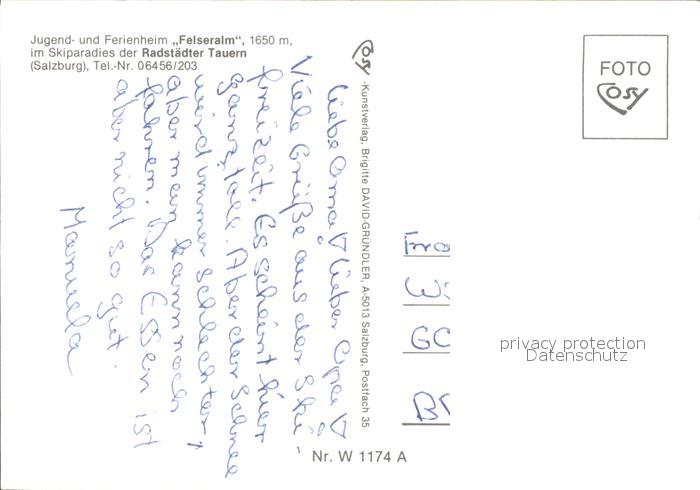 Jugend- und Ferienheim „Felseralm", 1650 m,
im Skiparadies der Radstädter Tauern
(Salzburg), Tel.-Nr. 06456/203
Liebe Oma! Lieber Opa!
Viele Grüße aus der Ski-
freizeit. Es scheint hier
ganz toll. Aber der Schnee
wird immer schlechter,
aber man kann noch
fahren. Das Essen ist
aber nicht so gut.
Manuela
Cosy -Kunstverlag, Brigitte DAVID-GRÜNDLER, A-5013 Salzburg, Postfach 35
FOTO
Cosy
privacy protection
Datenschutz
Nr. W 1174 A